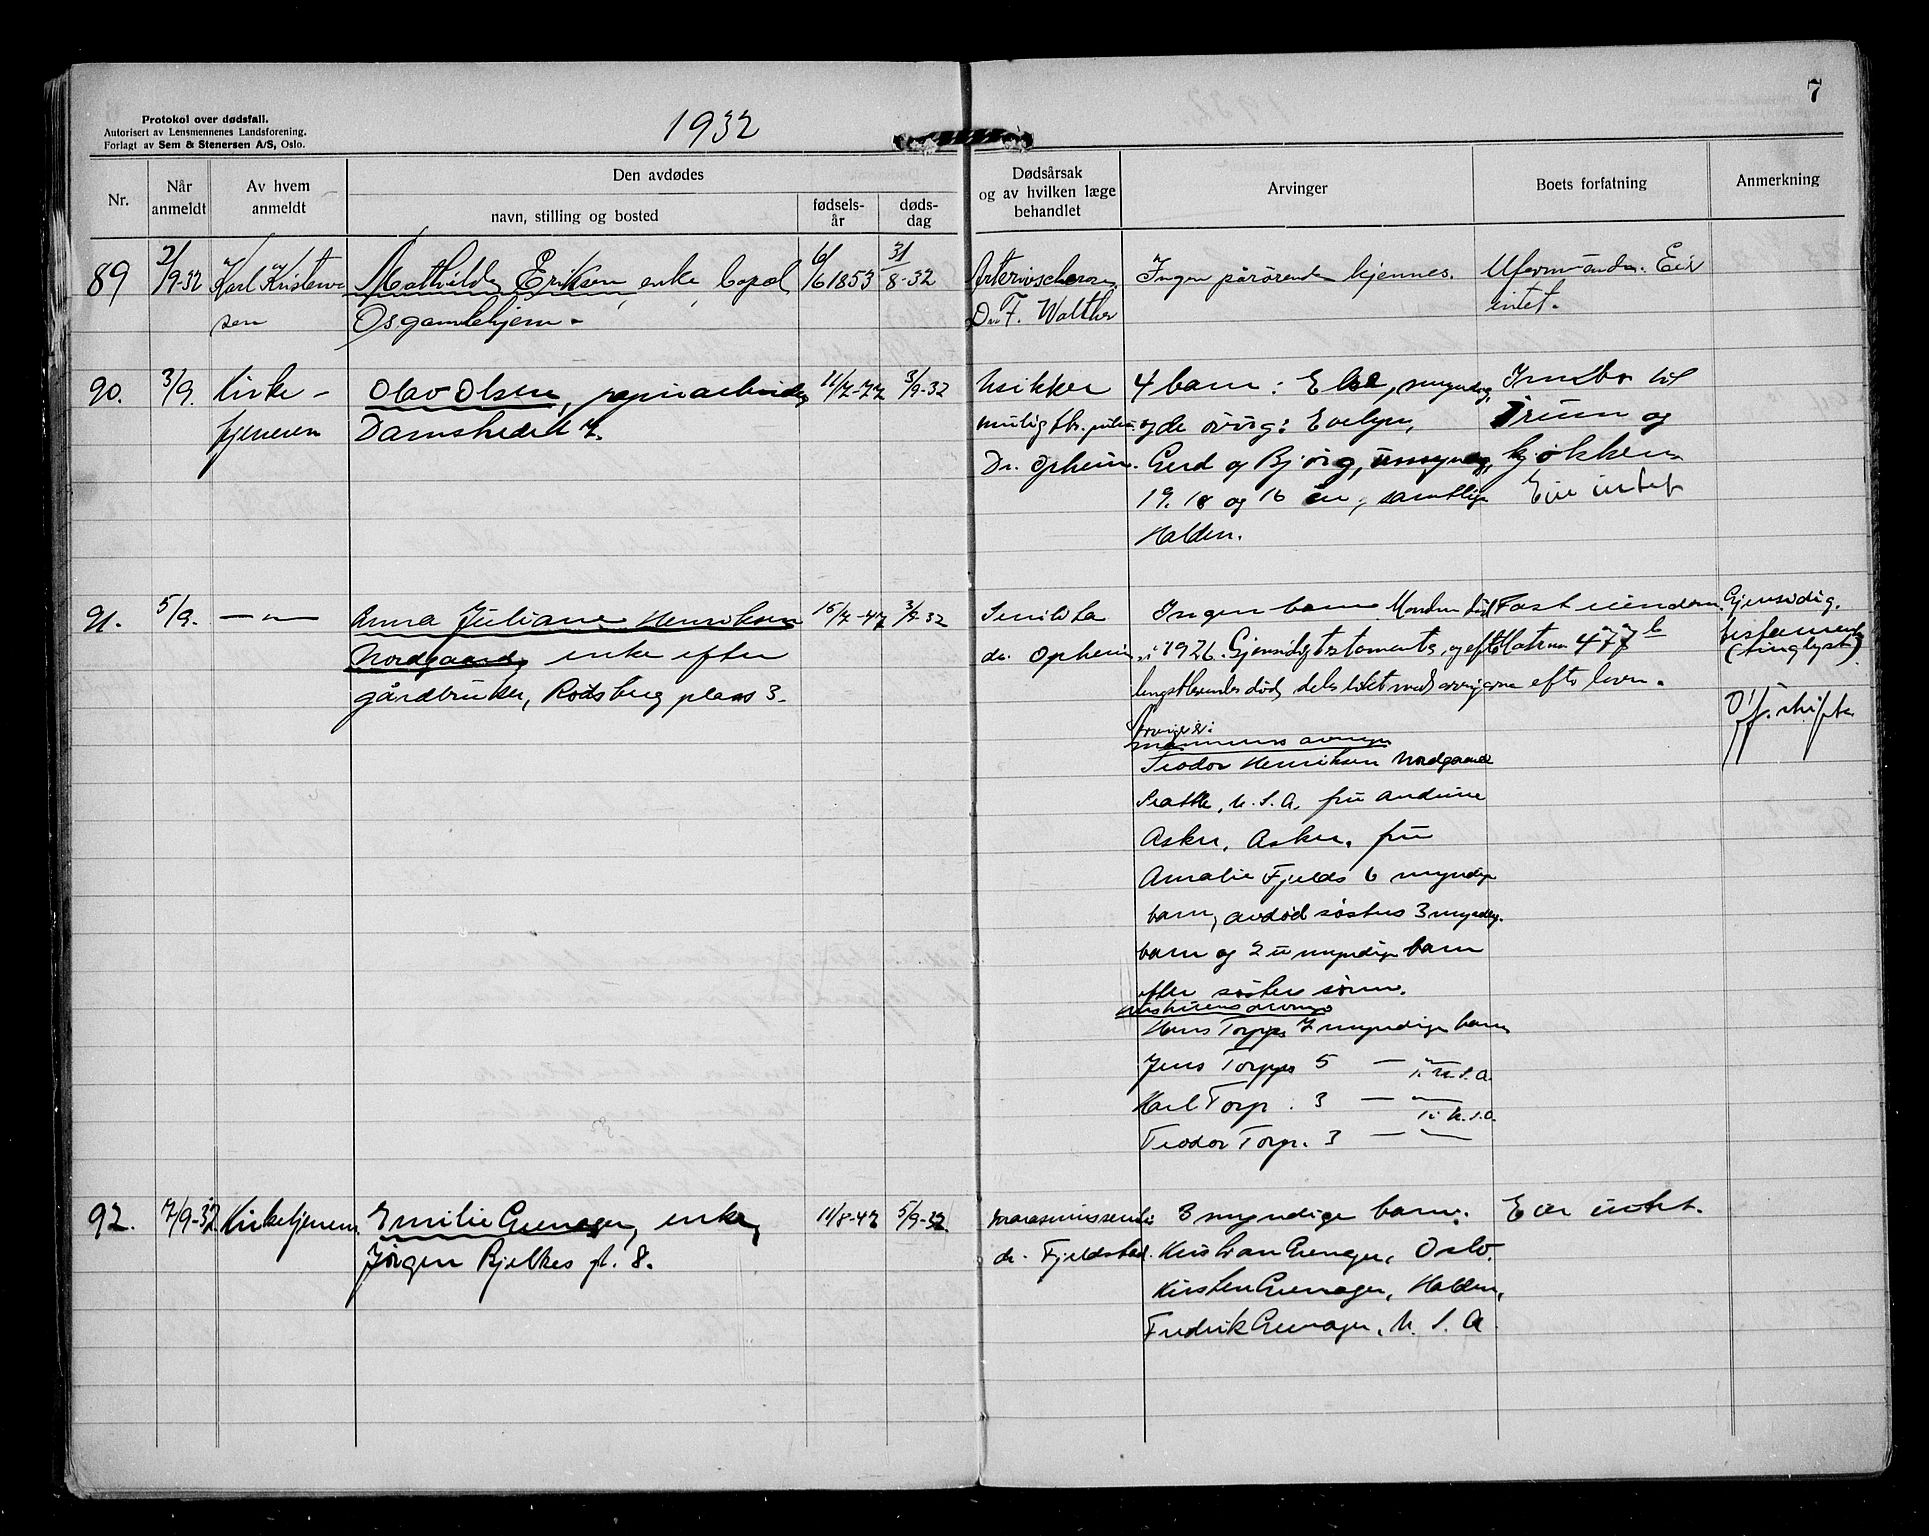 7
Protokol over dødsfall.
Autorisert av Lensmennenes Landsforening.
Forlagt av Sem & Stenersen A/S, Oslo.
1932
Nr.
Når anmeldt
Av hvem anmeldt
Den avdødes
navn, stilling og bosted
fødsels-år
døds-dag
Dødsårsak og av hvilken læge behandlet
Arvinger
Boets forfatning
Anmerkning
89
2/9-32
Karl Kristen
sen
Mathilde Eriksen, enke,
Os gamlehjem.
6/6 1853
31/8-32
Dr. F. Walther
Ingen pårørende kjennes.
Uformuende. Eier
intet.
90.
3/9.
Kirke-
tjeneren
Olav Olsen, papirarbeider
Damstredet 7.
11/7-77
3/9-32
Usikker
muligt
Dr. Opheim.
4 barn: Else, myndig,
og de øvrige: Evelyn,
Gerd og Bjørg, umyndig,
19. 18 og 16 år, samtlige
Halden.
Innbo til
1 rum og
kjøkken.
Eier intet
91.
5/9.
— " —
Anna Juliane Henriksen
Nordgaard, enke efter
gårdbruker, Rødsberg plass 3.
15/7-47
3/9-32
Senilitas
dr. Opheim
Ingen barn. Mannen død
i 1926. Gjensidig testamente, og efter
lengstlevendes død, deles boet med arvingerne efter loven.
Arvinger:
mannens arvinger
Teodor Henriksen Nordgaard
Seattle, U.S.A. fru Andrine
Asker, Asker, fru
Amalie Fjelds 6 myndige
barn, avdød søsters 3 myndig.
barn og 2 umyndige barn
efter søsters sønn.
Hustruens arvinger
Hans Torps 7 myndige barn
Jens Torps 5 — " —
i U.S.A.
Karl Torp. 3 — " —
i U.S.A.
Teodor Torp. 3 — " —
Fast eiendom.
Matr. nr 477 b
Gjensidig.
testamente
(tinglyst)
Off. skifte
92.
7/9-32
Kirketjeneren
Emilie Grenager, enke,
Jørgen Bjelkes gt. 8.
11/8-47
5/9-32
marasmus senilis
dr. Fjeldstad.
3 myndige barn:
Kristian Grenager, Oslo.
Kirsten Grenager, Halden,
Fredrik Grenager, U.S.A.
Eier intet.